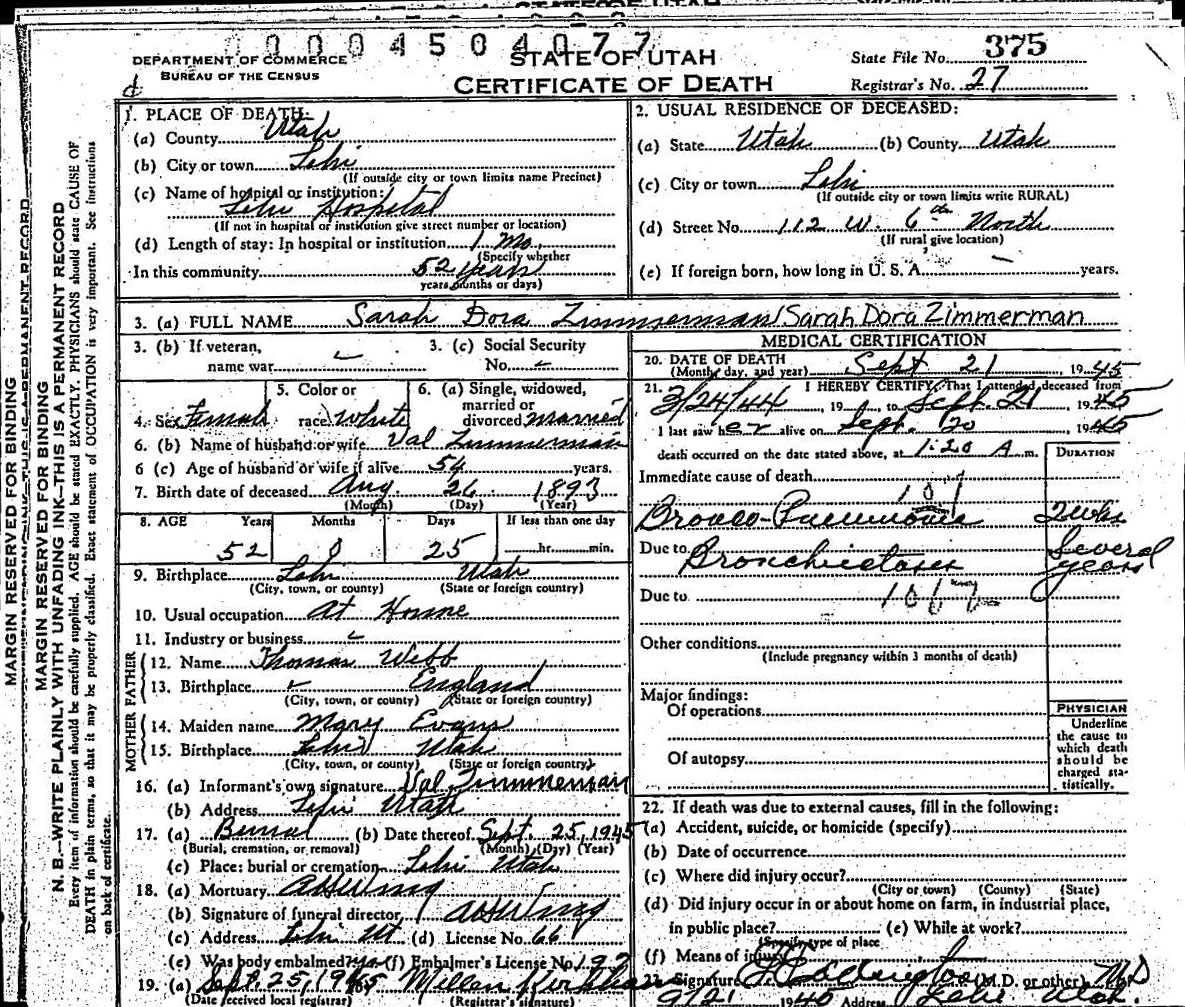 0000450 4077
DEPARTMENT OF COMMERCE
BUREAU OF THE CENSUS
STATE OF UTAH
CERTIFICATE OF DEATH
State File No. 375
Registrar's No. 27
MARGIN RESERVED FOR BINDING
MARGIN RESERVED FOR BINDING
N. B.—WRITE PLAINLY WITH UNFADING INK—THIS IS A PERMANENT RECORD
Every item of information should be carefully supplied. AGE should be stated EXACTLY. PHYSICIANS should state CAUSE OF
DEATH in plain terms, so that it may be properly classified. Exact statement of OCCUPATION is very important. See Instructions
on back of certificate.
1. PLACE OF DEATH:
(a) County Utah
(b) City or town Lehi
(If outside city or town limits name Precinct)
(c) Name of hospital or institution:
Lehi Hospital
(If not in hospital or institution give street number or location)
(d) Length of stay: In hospital or institution 1 Mo.
(Specify whether
In this community 52 years
years, months or days)
2. USUAL RESIDENCE OF DECEASED:
(a) State Utah (b) County Utah
(c) City or town Lehi
(If outside city or town limits write RURAL)
(d) Street No. 112 W. 6th North
(If rural give location)
(e) If foreign born, how long in U. S. A. — years.
3. (a) FULL NAME Sarah Dora Zimmerman/Sarah Dora Zimmerman
3. (b) If veteran,
name war
3. (c) Social Security
No.
4. Sex Female
5. Color or
race White
6. (a) Single, widowed,
married or
divorced married
6. (b) Name of husband or wife Val Zimmerman
6 (c) Age of husband or wife if alive 54 years.
7. Birth date of deceased Aug. 26 1893
(Month) (Day) (Year)
8. AGE Years Months Days If less than one day
52 0 25 hr. min.
9. Birthplace Lehi Utah
(City, town, or county) (State or foreign country)
10. Usual occupation At Home
11. Industry or business
FATHER
12. Name Thomas Webb
13. Birthplace England
(City, town, or county) (State or foreign country)
MOTHER
14. Maiden name Mary Evans
15. Birthplace Lehi Utah
(City, town, or county) (State or foreign country)
16. (a) Informant's own signature Val Zimmerman
(b) Address Lehi Utah
17. (a) Burial (b) Date thereof Sept. 25, 1945
(Burial, cremation, or removal) (Month) (Day) (Year)
(c) Place: burial or cremation Lehi Utah
18. (a) Mortuary
(b) Signature of funeral director
(c) Address Lehi Ut (d) License No. 66
(e) Was body embalmed? (f) Embalmer's License No. 192
19. (a) Sept. 25, 1945
(Date received local registrar) (Registrar's signature)
MEDICAL CERTIFICATION
20. DATE OF DEATH
(Month, day, and year) Sept 21 1945
21. I HEREBY CERTIFY, That I attended deceased from
3/24/44, 19 to Sept. 21 1945
I last saw her alive on Sept. 20 1945
death occurred on the date stated above, at 1:20 A m.
DURATION
Immediate cause of death
107
Bronco-Pneumonia 2 wks
Due to Bronchiectases Several years
Due to
Other conditions
(Include pregnancy within 3 months of death)
Major findings:
Of operations
Of autopsy
PHYSICIAN
Underline
the cause to
which death
should be
charged sta-
tistically.
22. If death was due to external causes, fill in the following:
(a) Accident, suicide, or homicide (specify)
(b) Date of occurrence
(c) Where did injury occur?
(City or town) (County) (State)
(d) Did injury occur in or about home on farm, in industrial place,
in public place? (e) While at work?
(Specify type of place
(f) Means of injury
23. Signature (M.D. or other) MD
9/21 1945 Address Lehi Utah.